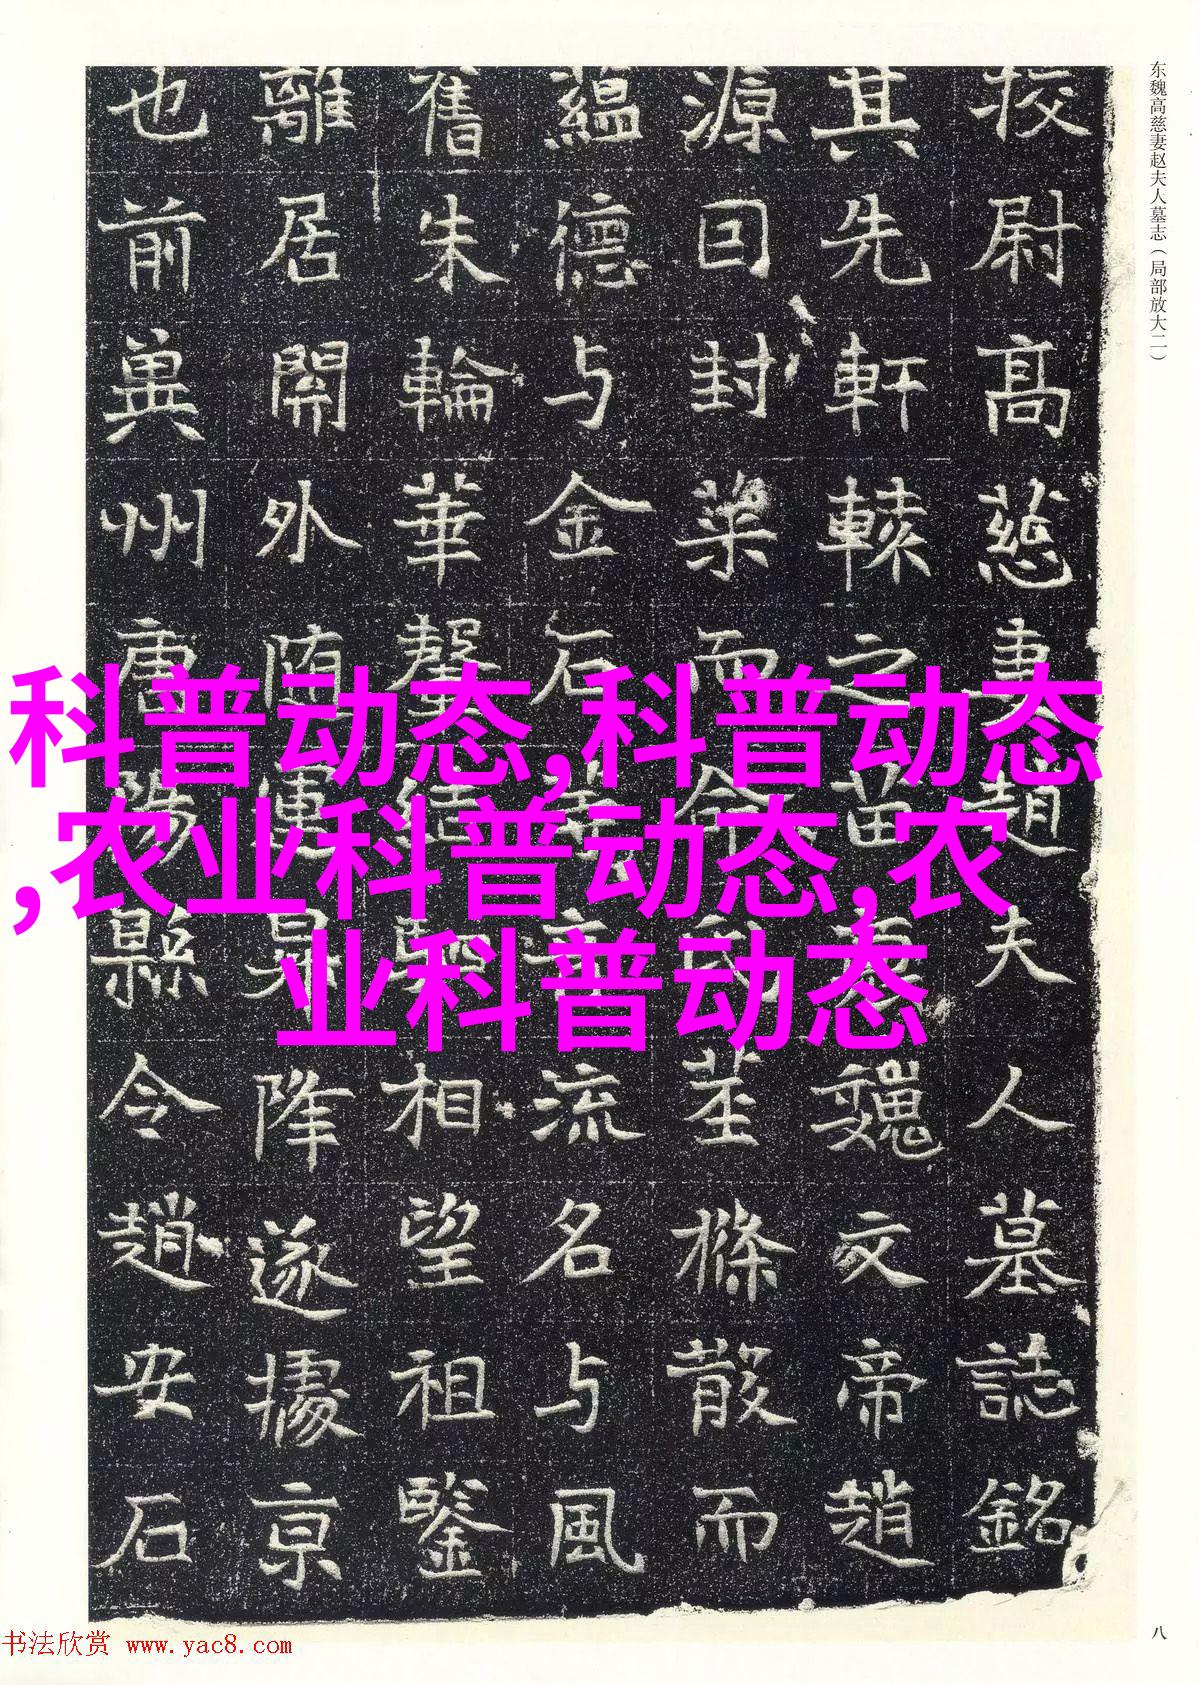 东魏高慈妻赵夫人墓志（局部放大二）
挍尉髙慈妻趙夫人墓誌銘
其先軒轅之苗裔魏文帝趙
源囙封而命氏茎條散而
蕴德与金石流名与風
舊朱輪華轂結駟相望祖鑒
離居開外随運昇降遂據京
也前兾州唐陽縣令趙安石
科普动态,科普动态
,农业科普动态,农
业科普动态
八
书法欣赏 www.yac8.com